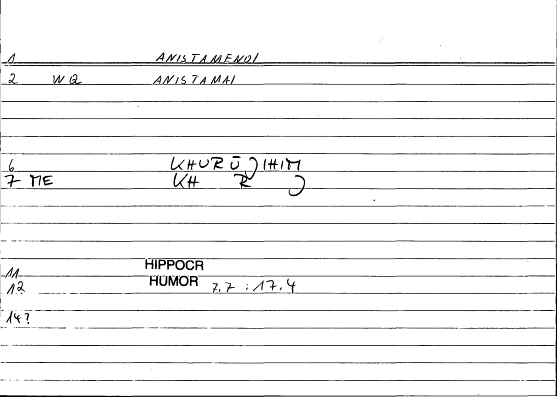 1 ANISTAMENOI
2 WQ ANISTAMAI
6 KHURŪJIHIM
7 ME KH R J
11 HIPPOCR
12 HUMOR 7.7 : 17.4
14?